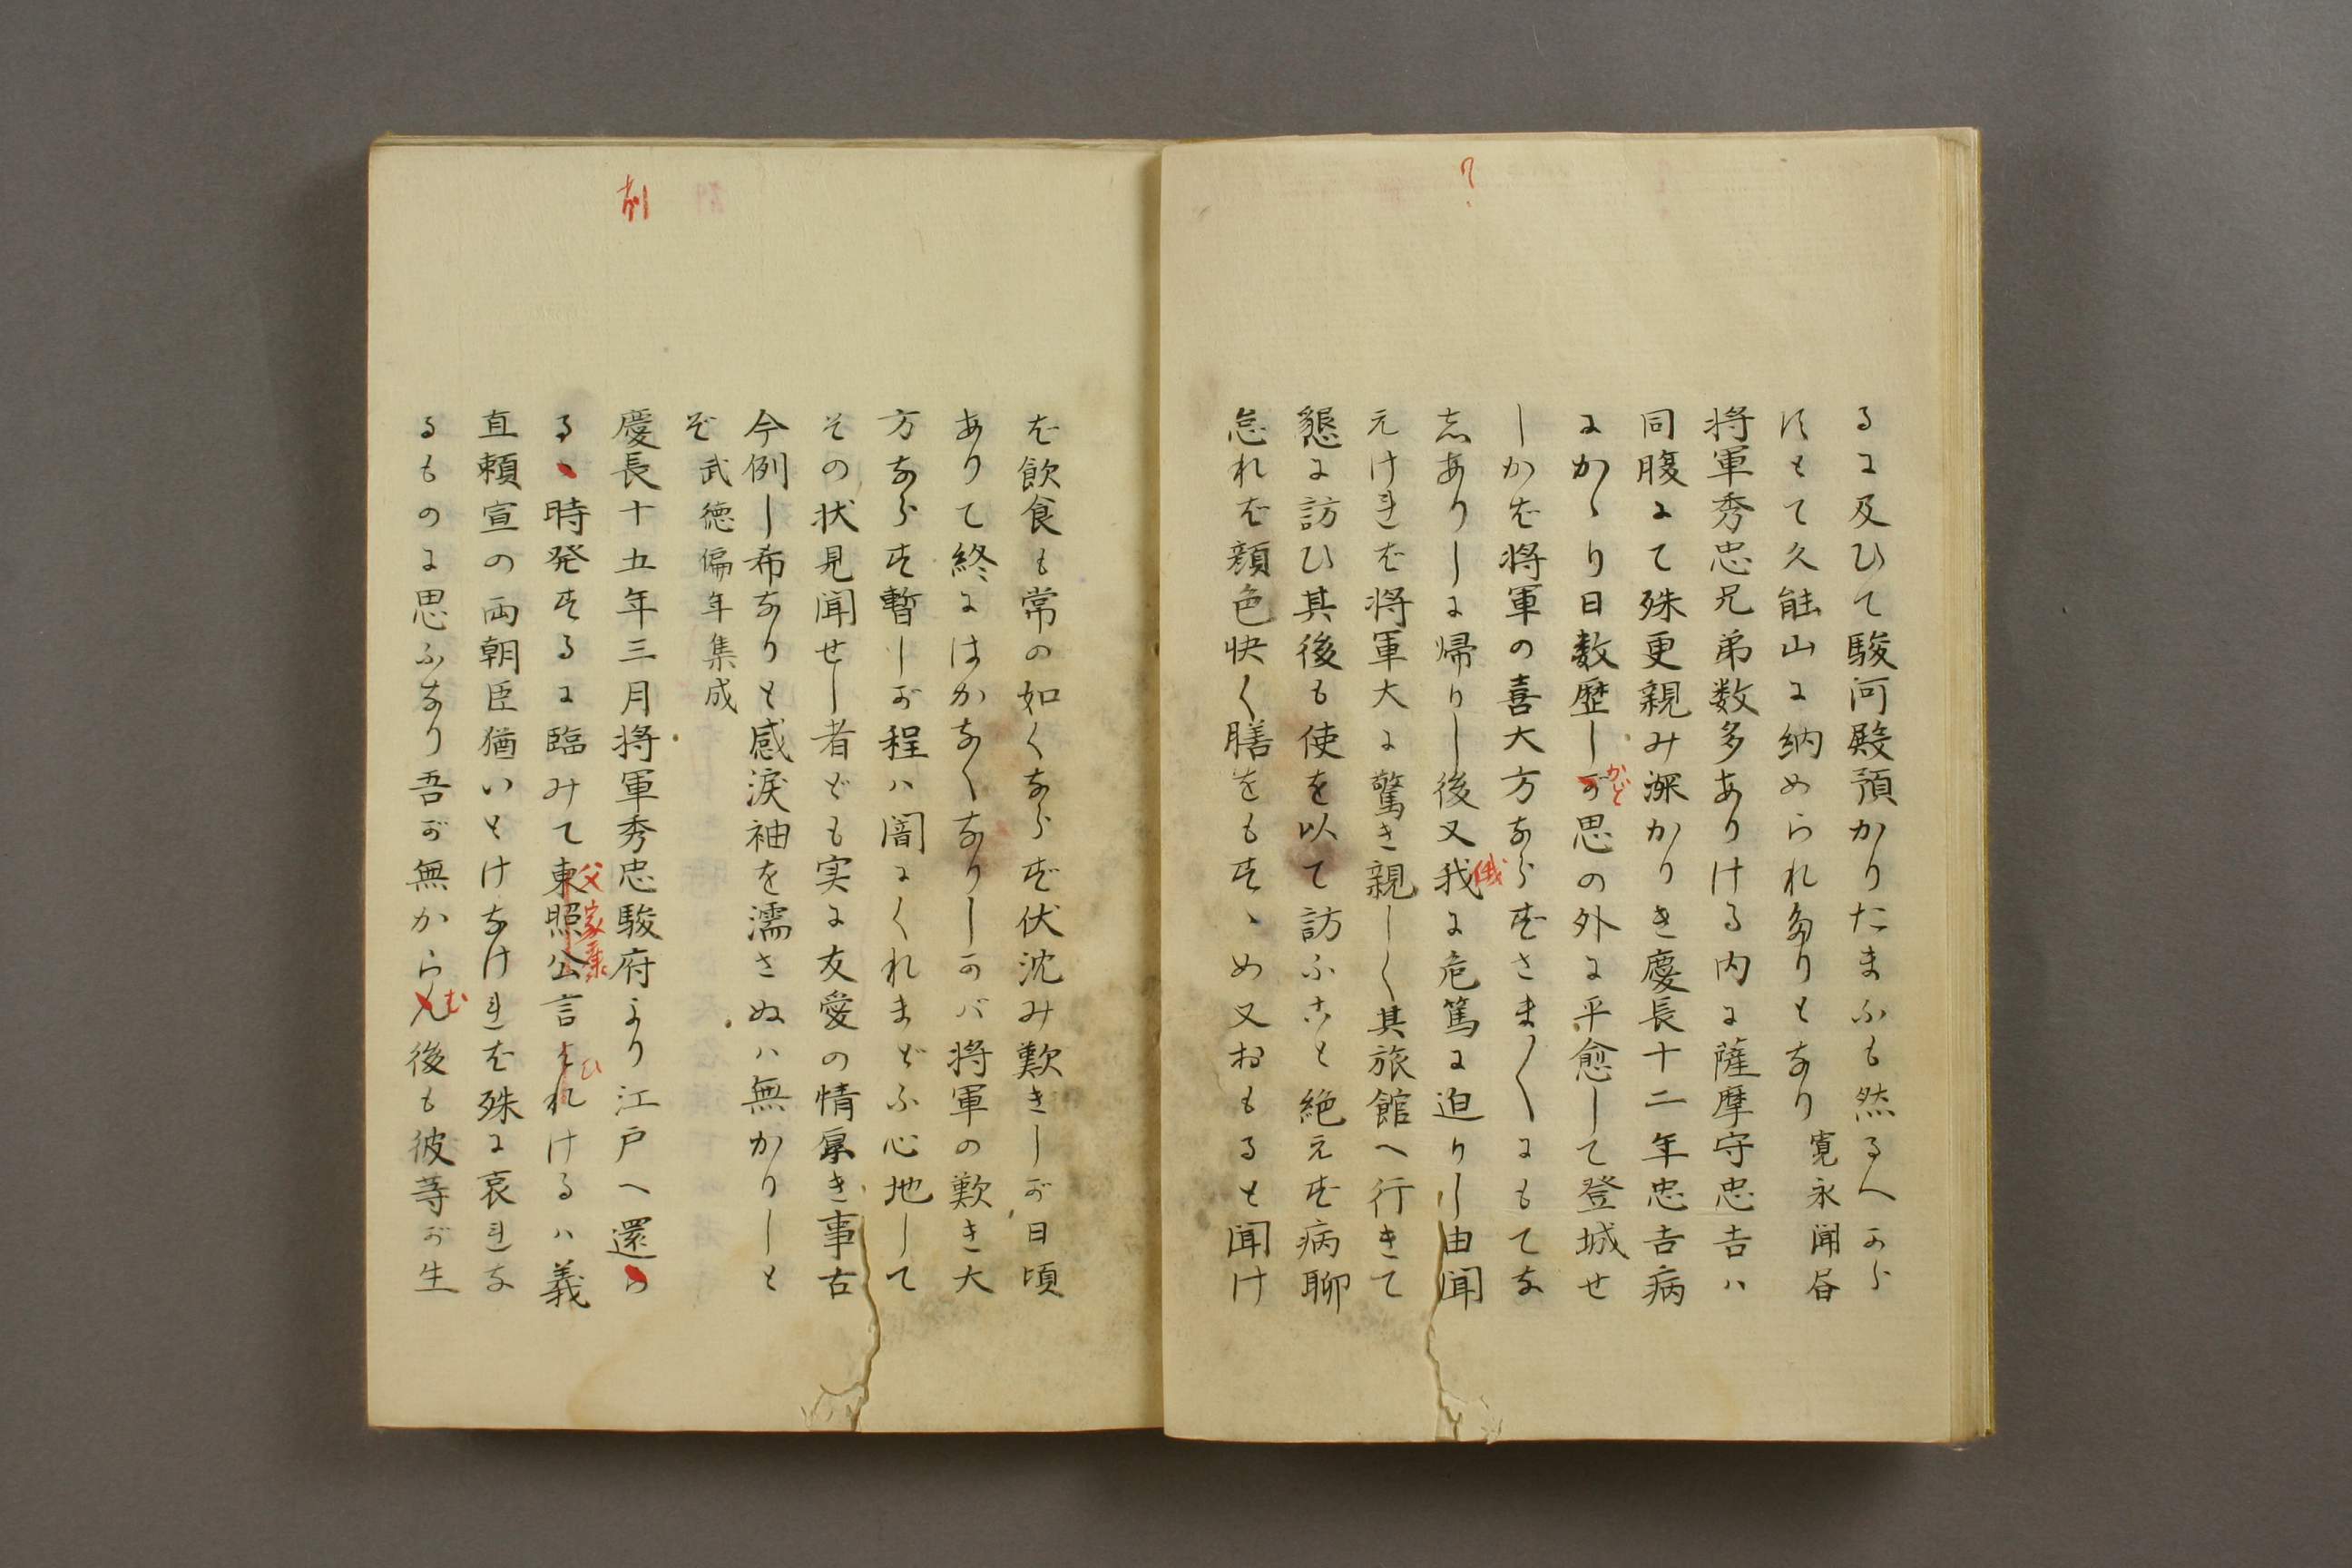 ?
るに及ひて駿河殿預かりたまふも然るへから
すとて久能山に納められたりとなり寛永聞昼
将軍秀忠兄弟数多ありける内に薩摩守忠吉ハ
同腹にて殊更親み深かりき慶長十二年忠吉病
にかゝり日数歴しが思の外に平愈して登城せ
かど
しかば将軍の喜大方ならずさま〱にもてな
志ありしに帰りし後又我に危篤に迫りし由聞
俄
えければ将軍大に驚き親しく其旅館へ行きて
懇に訪ひ其後も使を以て訪ふこと絶えず病聊
怠れば顔色快く膳をもすゝめ又おもると聞け
ば飲食も常の如くならず伏沈み歎きしが日頃
ありて終にはかなくなりしかバ将軍の歎き大
方ならず暫しが程ハ闇にくれまどふ心地して
その状見聞せし者ども実に友愛の情厚き事古
今例し希なりと感涙袖を濡さぬハ無かりしと
ぞ 武徳偏年集成
別
慶長十五年三月将軍秀忠駿府より江戸へ還ら
るゝ時発するに臨みて東照公言はれけるハ義
父家康
ひ
直頼宣の両朝臣猶いとけなければ殊に哀れな
るものに思ふなり吾が無からん後も彼等が生
む